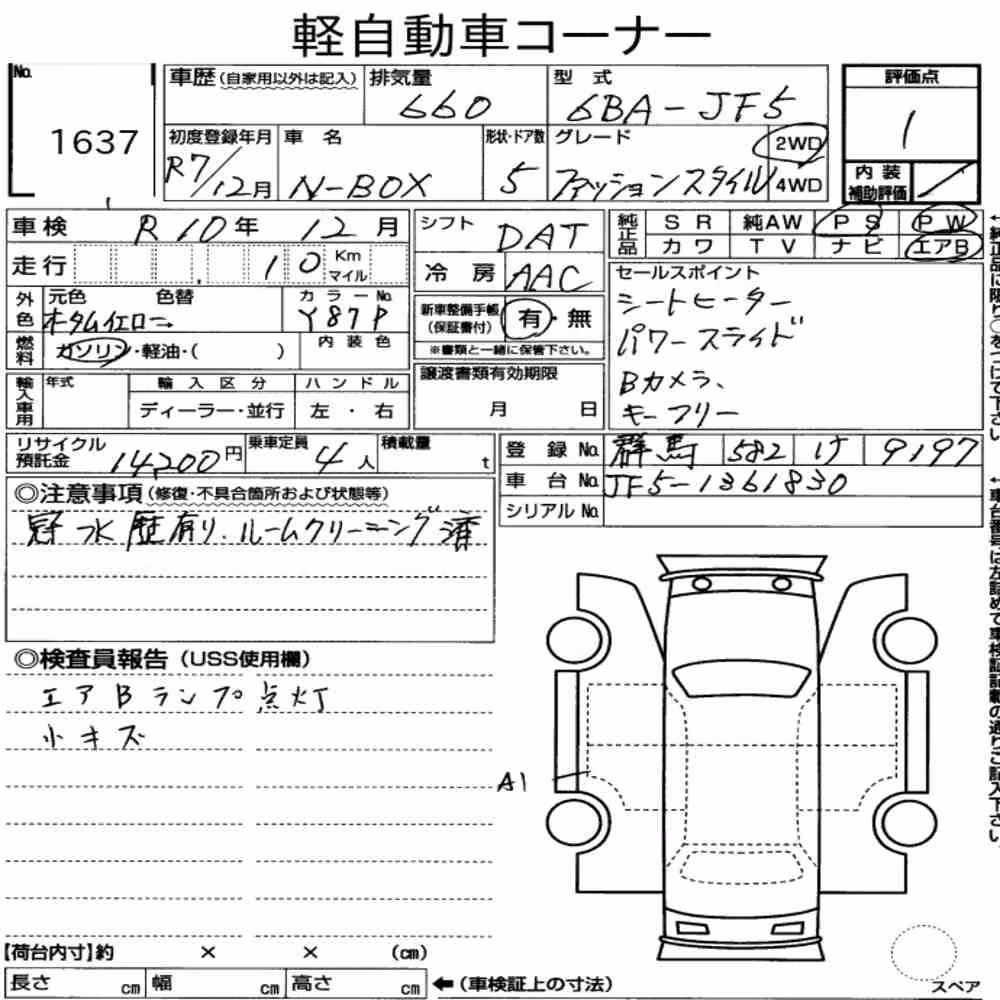 軽自動車コーナー
No. 1637
車歴(自家用以外は記入)
排気量 660
型式 6BA-JF5
評価点 1
内装補助評価 /
初度登録年月 R7/12月
車名 N-BOX
形状・ドア数 5
グレード ファッションスタイル
2WD
4WD
車検 R10年 12月
走行 10 Km マイル
外色 元色 色替 オータムイエロー
カラーNo. Y87P
燃料 ガソリン・軽油・( )
内装色
輸入車用 年式 輸入区分 ハンドル
ディーラー・並行 左・右
シフト DAT
冷房 AAC
新車整備手帳(保証書付) 有・無
※書類と一緒に保管下さい。
譲渡書類有効期限
月 日
純正品 SR 純AW PS PW
カワ TV ナビ エアB
セールスポイント
シートヒーター
パワースライド
Bカメラ、
キーフリー
リサイクル預託金 14200円
乗車定員 4人
積載量 t
登録No. 群馬 582 け 9197
車台No. JF5-1361830
シリアルNo.
◎注意事項(修復・不具合箇所および状態等)
冠水歴有り、ルームクリーニング済
◎検査員報告(USS使用欄)
エアBランプ点灯
小キズ
A1
【荷台内寸】約 × × (cm)
長さ cm 幅 cm 高さ cm ←(車検証上の寸法)
スペア
←純正品に限り○をつけて下さい。
←車台番号は左詰めで車検証記載の通りご記入下さい。